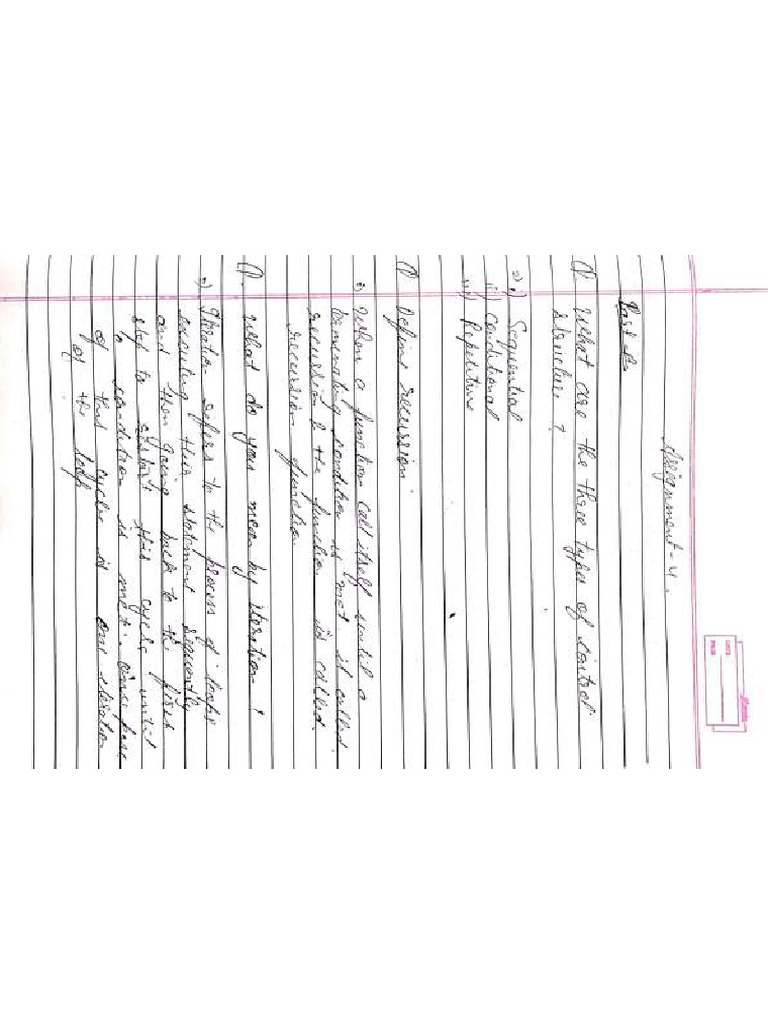 Assignment-4.
DATE
PAGE
Part-A
Q What are the three types of control
structure ?
i) Sequential
ii) Conditional
iii) Repetitive
Q Define recursion.
When a function call itself until a
terminating condition is met is called
recursion & the function is called
recursion function.
Q. What do you mean by iteration ?
Iteration refers to the process of loops
executing this statement sequently
and then going back to the first
step to this cycle until
condition is One pass
of that cycle is one iteration
of the loop